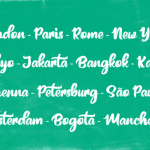 ndon - Paris - Rome - New Y
yo - Jakarta - Bangkok - Ka
enna - Petersburg - São Pau
sterdam - Bogotá - Manche